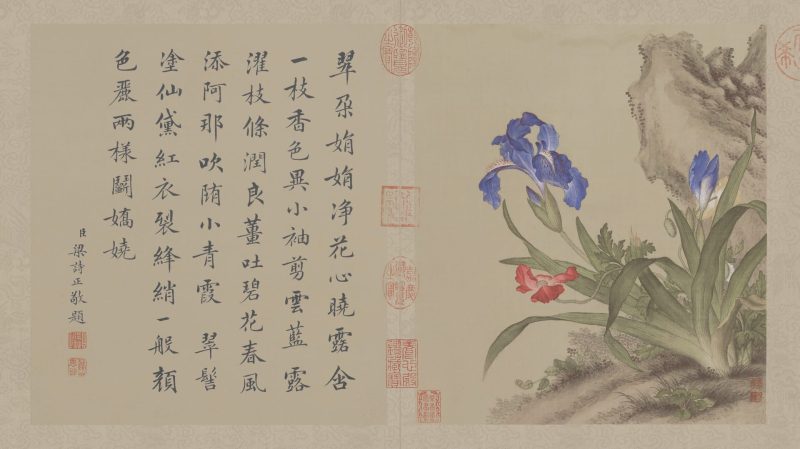 翠朶娟娟净花心曉露含
一枝香色異小袖剪雲藍露
濯枝條潤良薑吐碧花春風
添阿那吹隋小青霞 翠髻
塗仙黛紅衣裂絳綃一般顏
色麗兩樣鬭嬌嬈
臣梁詩正敬題